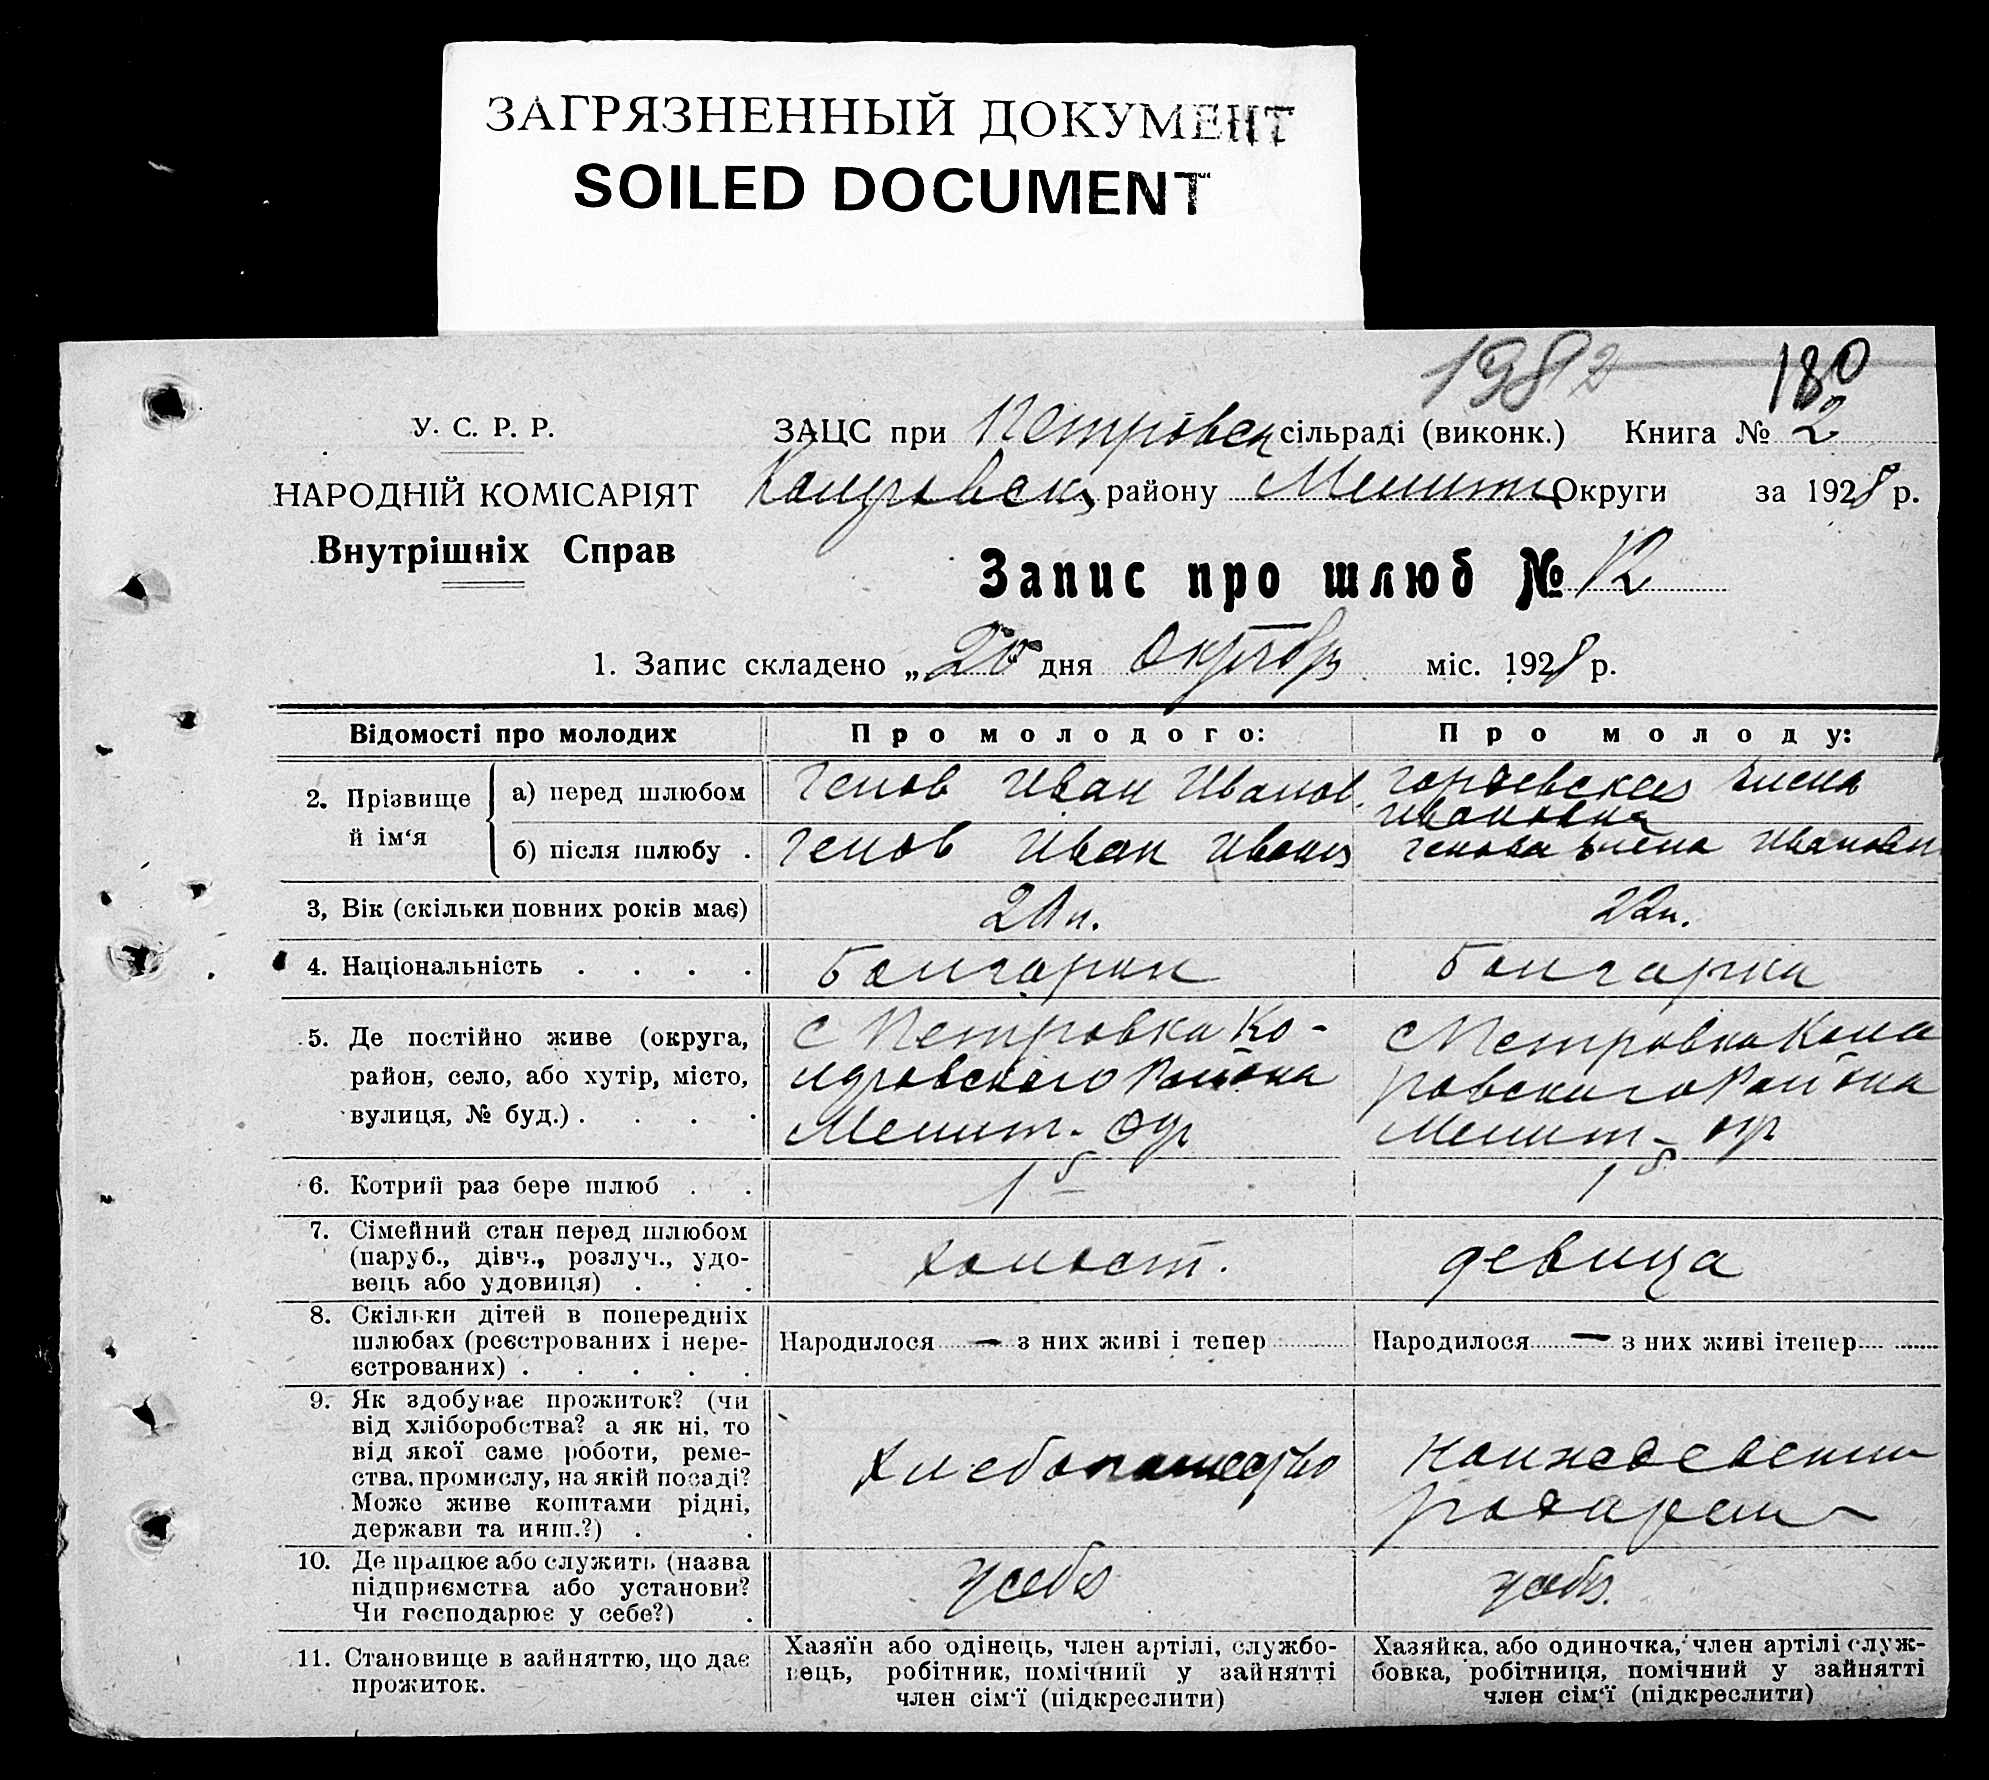 ЗАГРЯЗНЕННЫЙ ДОКУМЕНТ
SOILED DOCUMENT
1982
180
У. С. Р. Р.
НАРОДНІЙ КОМІСАРІЯТ
Внутрішніх Справ
ЗАЦС при Петровск сільраді (виконк.) Книга № 2
району Мелит Округи за 1928 р.
Запис про шлюб № 12
1. Запис складено „ 20 дня Октябр міс. 1928 р.
Відомості про молодих Про молодого: Про молоду:
2. Прізвище й ім‘я
а) перед шлюбом Генов Иван Иванов. Елена Ивановна
б) після шлюбу . Генов Иван Иванов Генова Елена Ивановн
3, Вік (скільки повних років має) 20л. 22л.
4. Національність . . . . Болгарин Болгарка
5. Де постійно живе (округа, район, село, або хутір, місто, вулиця, № буд.) . . . .
с Петровка Ко-
Района
Мелит. Окр
с Петровка Кола
ровского Района
Мелит- окр
6. Котрий раз бере шлюб . . 1й 1й
7. Сімейний стан перед шлюбом
(паруб., дівч., розлуч., удо-
вець або удовиця) . . . холост. девица
8. Скільки дітей в попередніх
шлюбах (реєстрованих і нере-
єстрованих) . . . . .
Народилося — з них живі і тепер
Народилося — з них живі ітепер
9. Як здобуває прожиток? (чи
від хліборобства? а як ні, то
від якої саме роботи, реме-
ства, промислу, на якій посаді?
Може живе коштами рідні,
держави та инш.?) . .
Хлебопашество
10. Де працює або служить (назва
підприємства або установи?
Чи господарює у себе?) .
у себя
у себя.
11. Становище в зайняттю, що дає
прожиток.
Хазяїн або одінець, член артілі, службо-
вець, робітник, помічний у зайнятті
член сім‘ї (підкреслити)
Хазяйка, або одиночка, член артілі служ-
бовка, робітниця, помічний у зайнятті
член сім‘ї (підкреслити)